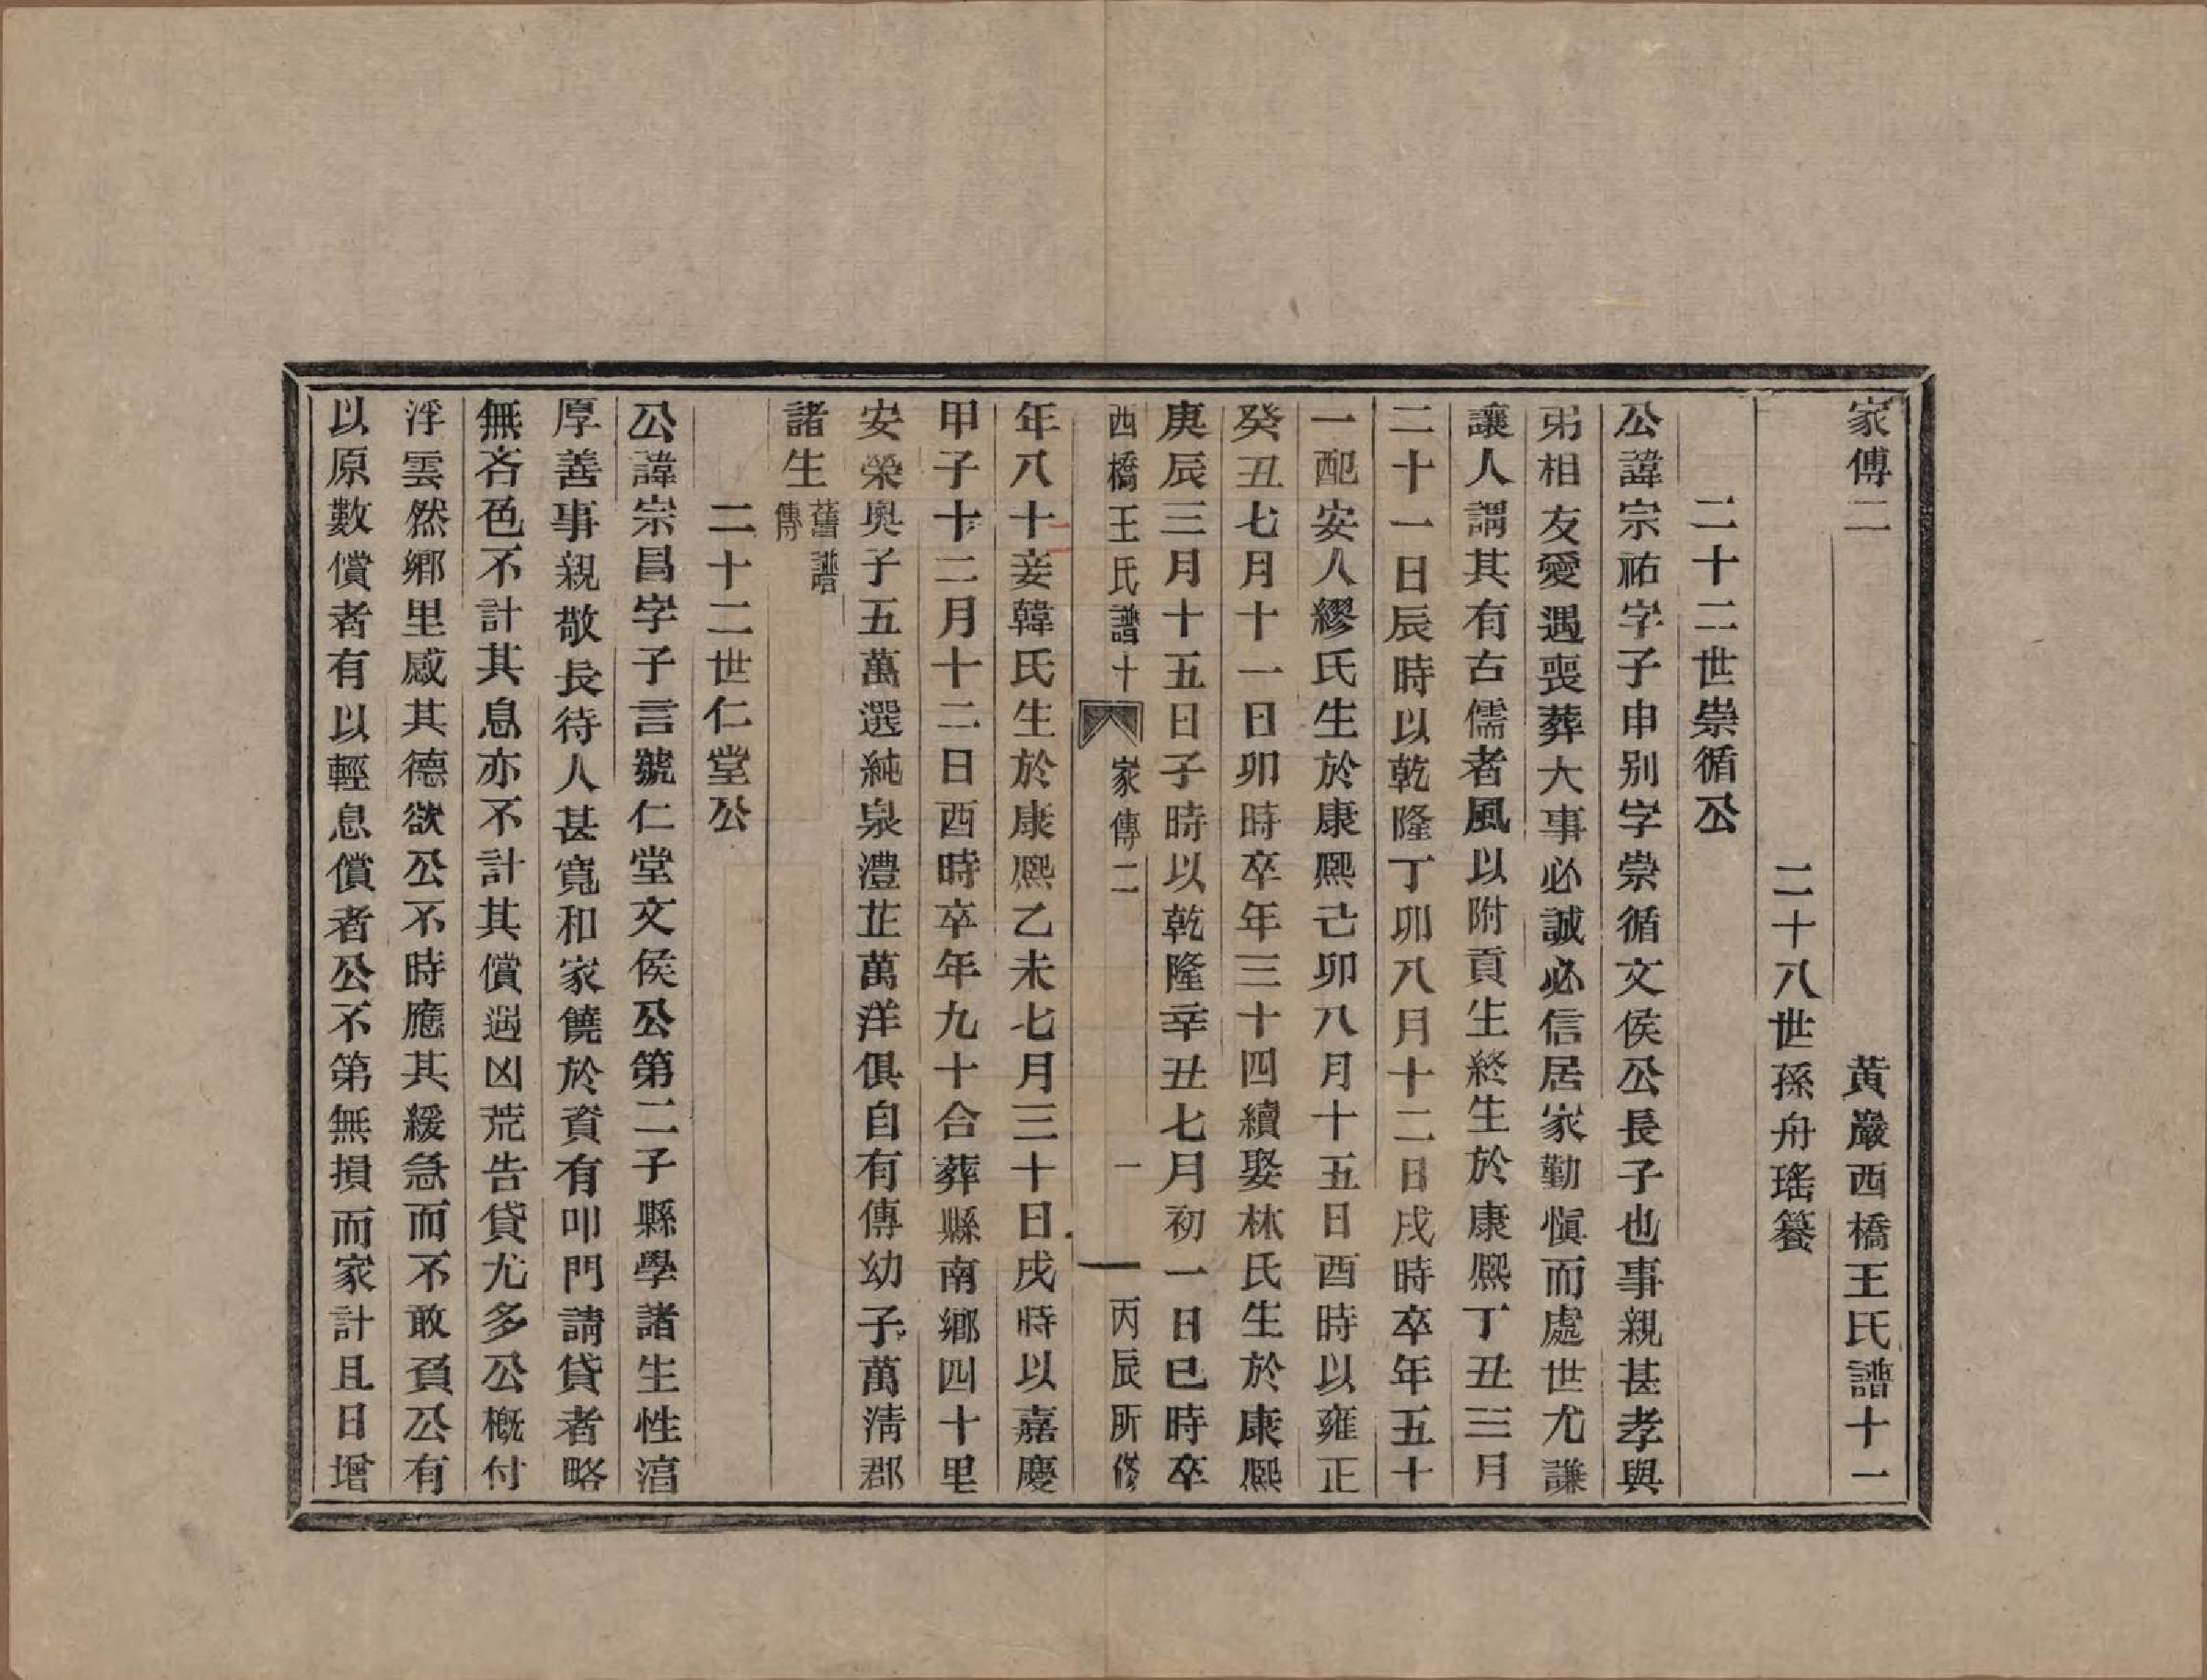 家傳二　黃巖西橋王氏譜十一
二十八世孫舟瑤籑
二十二世崇循公
公諱宗祐字子申別字崇循文侯公長子也事親甚孝與
弟相友愛遇喪葬大事必誠必信居家勤愼而處世尤謙
讓人謂其有古儒者風以附貢生終生於康熙丁丑三月
二十一日辰時以乾隆丁卯八月十二日戌時卒年五十
一配安人繆氏生於康熙己卯八月十五日酉時以雍正
癸丑七月十一日卯時卒年三十四續娶林氏生於康熙
庚辰三月十五日子時以乾隆辛丑七月初一日巳時卒
西橋王氏譜十　家傳二　一　丙辰所修
年八十二妾韓氏生於康熙乙未七月三十日戌時以嘉慶
甲子十二月十二日酉時卒年九十合葬縣南鄉四十里
安榮奧子五萬選純泉澧芷萬洋俱自有傳幼子萬淸郡
諸生舊譜傳
二十二世仁堂公
公諱宗昌字子言號仁堂文侯公第二子縣學諸生性渲
厚善事親敬長待人甚寬和家饒於資有叩門請貸者略
無吝色不計其息亦不計其償遇凶荒告貸尤多公概付
浮雲然鄉里感其德欲公不時應其緩急而不敢負公有
以原數償者有以輕息償者公不第無損而家計且日增